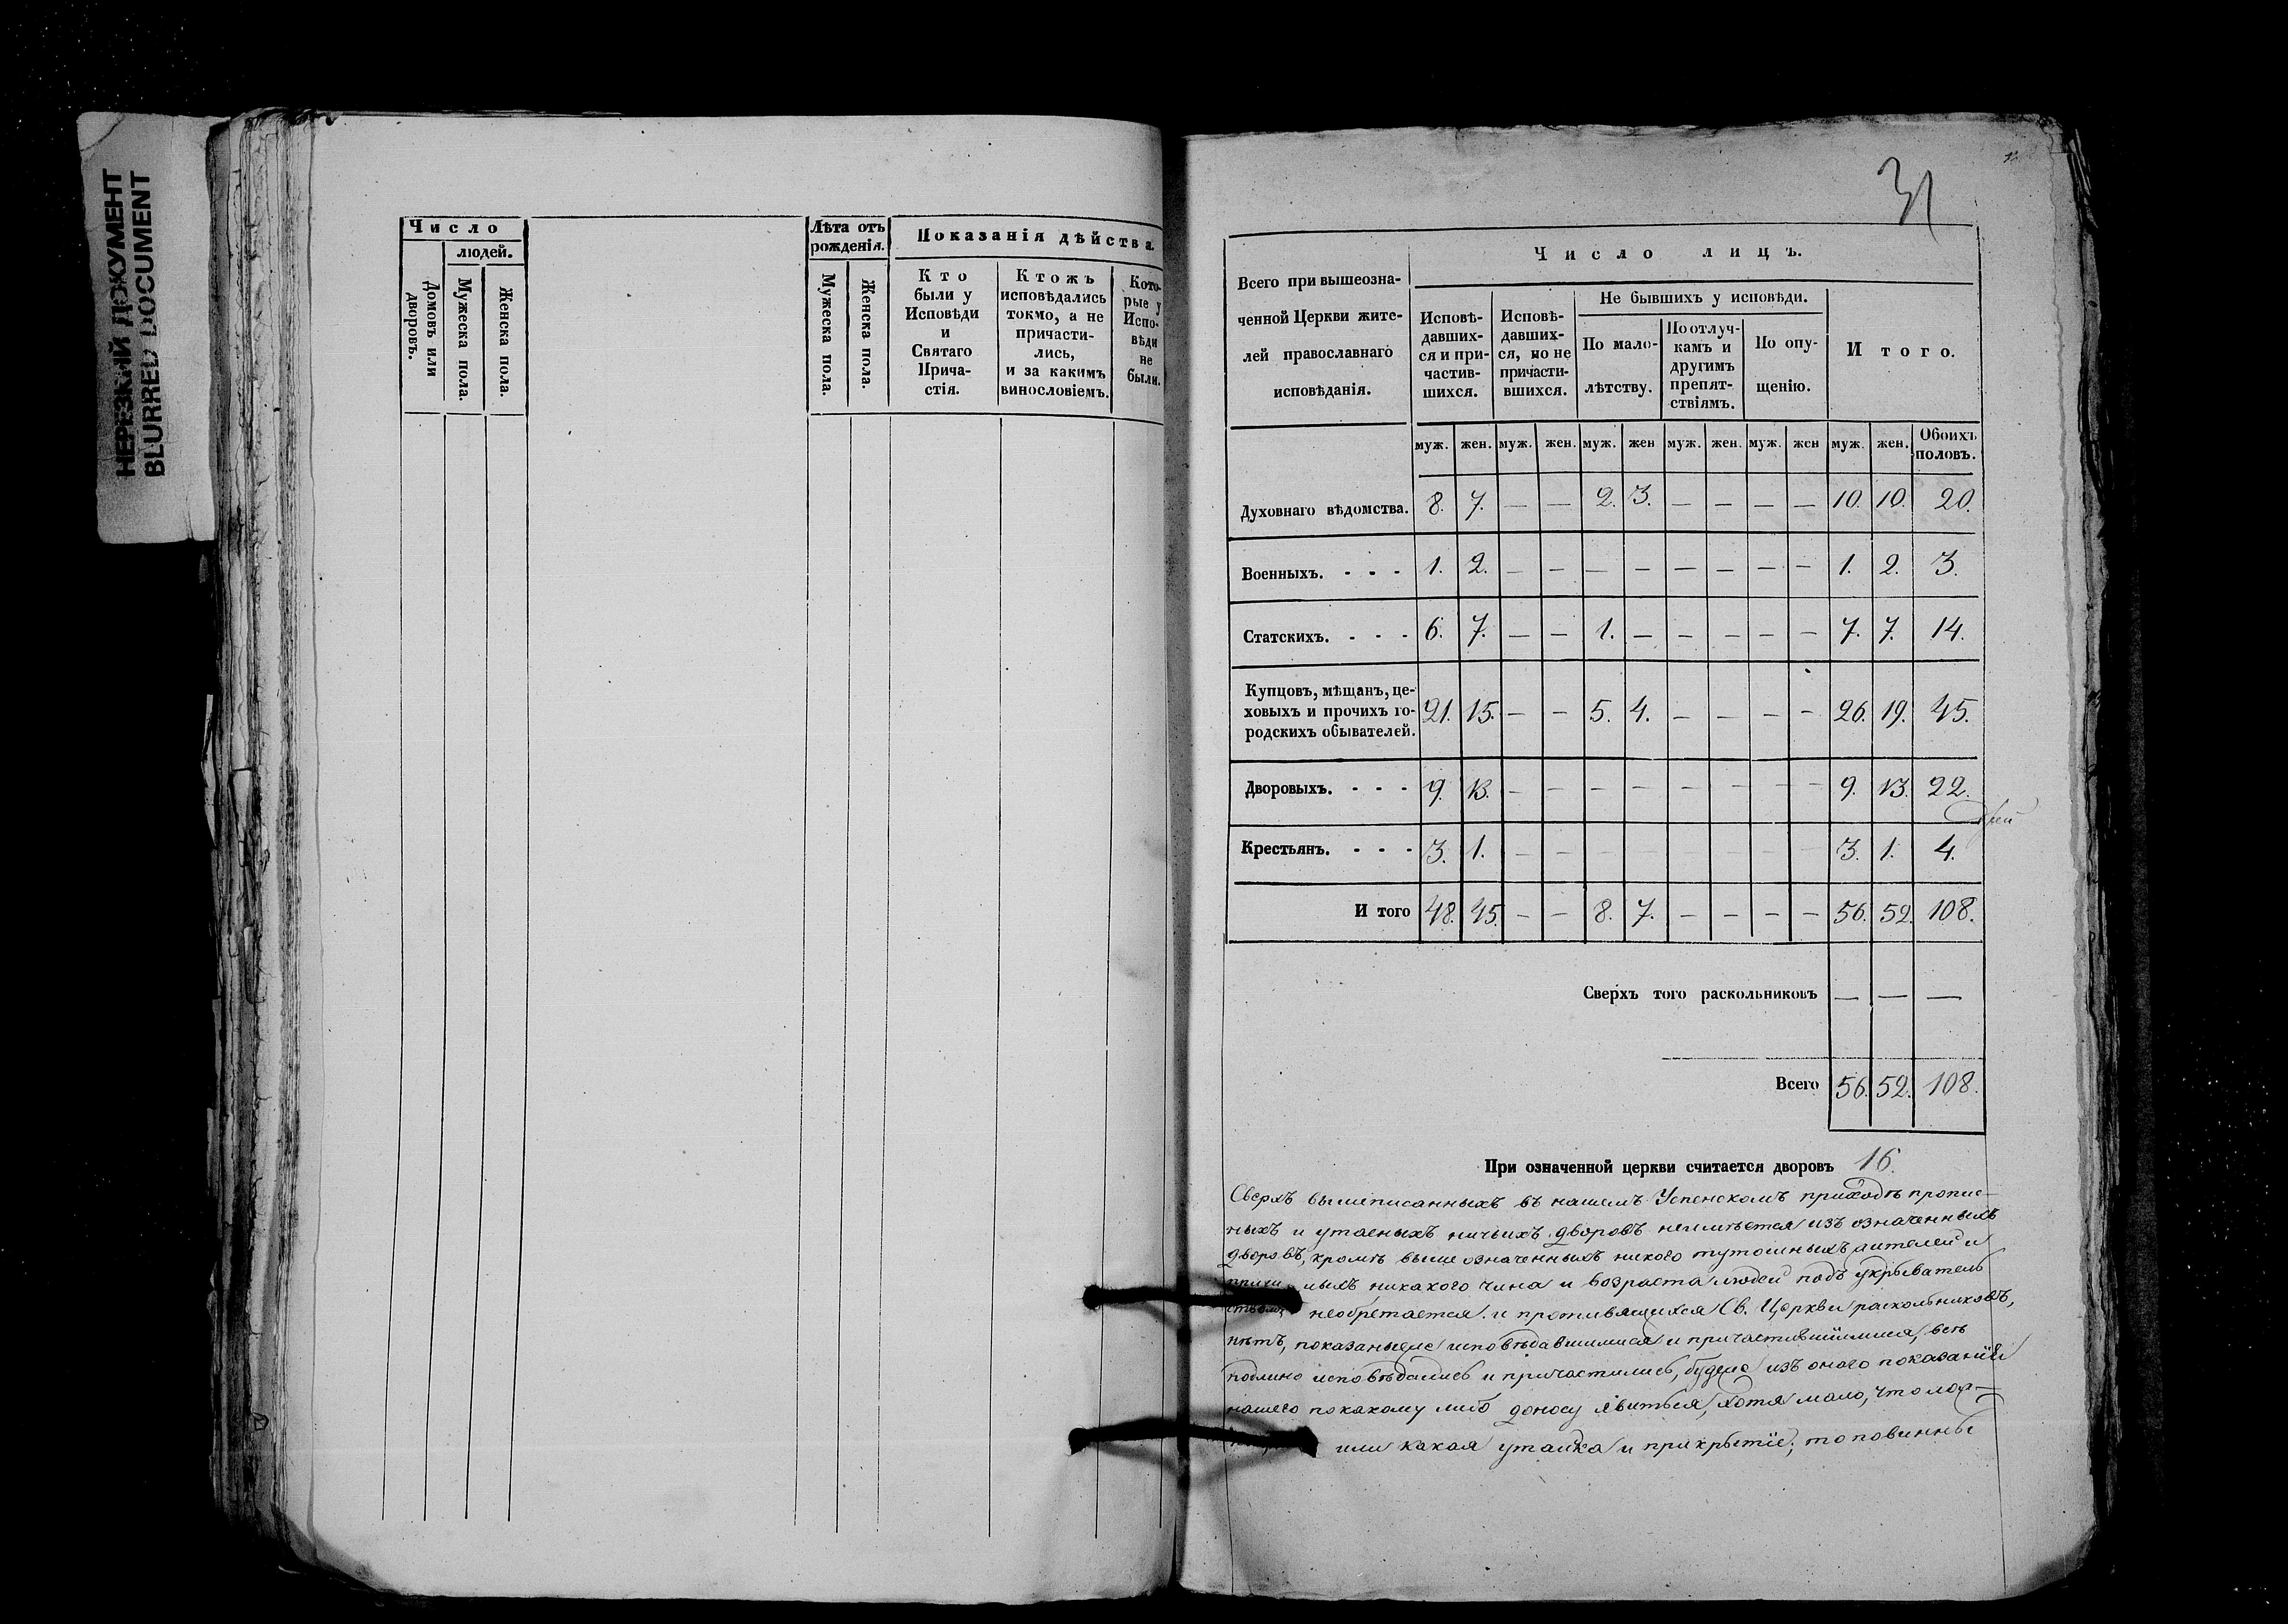 НЕРЕЗКИЙ ДОКУМЕНТ
BLURRED DOCUMENT
Число
людей.
Домовъ или дворовъ.
Мужеска пола.
Женска пола.
Лѣта отъ рожденія.
Мужеска пола.
Женска пола.
Показанія дѣйства.
Кто
были у
Исповѣди
и
Святаго
Прича-
стія.
Ктожъ
исповѣдались
токмо, а не
причасти-
лись,
и за какимъ
винословіемъ.
Кото-
рые у
Испо-
вѣди
не
были.
31
Всего при вышеозна-
ченной Церкви жите-
лей православнаго
исповѣданія.
Число лицъ.
Исповѣ-
давших-
ся и при-
частив-
шихся.
Исповѣ-
давших-
ся, но не
причасти-
вшихся.
Не бывшихъ у исповѣди.
По мало-
лѣтству.
По отлуч-
камъ и
другимъ
препят-
ствіямъ.
По опу-
щенію.
Итого.
муж. жен. муж. жен. муж. жен муж. жен. муж. жен муж. жен. Обоихъ половъ.
Духовнаго вѣдомства. 8. 7. — — 2. 3. — — — — 10. 10. 20.
Военныхъ. - - - 1. 2. — — — — — — — — 1. 2. 3.
Статскихъ. - - - 6. 7. — — 1. — — — — — 7. 7. 14.
Купцовъ, мѣщанъ, це-
ховыхъ и прочихъ го-
родскихъ обывателей. 21. 15. — — 5. 4. — — — — 26. 19. 45.
Дворовыхъ. - - - 9. 13. — — — — — — — — 9. 13. 22.
Крестьянъ. - - - 3. 1. — — — — — — — — 3. 1. 4.
И того 48. 45. — — 8. 7. — — — — 56. 52. 108.
Сверхъ того раскольниковъ — — —
Всего 56. 52. 108.
При означенной церкви считается дворовъ 16.
Сверхъ вышеписанныхъ въ нашемъ Успенскомъ приходѣ пропис-
ныхъ и утаеныхъ ничьихъ дворовъ неимѣется изъ означенныхъ
дворовъ, кромѣ выше означенныхъ никого тутошныхъ жителей и
никакого чина и возраста людей подъ укрыватель
необретается. и противящихся Св. Церкви раскольниковъ,
нѣтъ, показаные исповѣдавшимися и причастившимися, всѣ
подлино исповѣдались и причастились, будеже изъ оного показанія
нашего покакому либо доносу явиться, хотя мало, что лож-
или какая утайка и прикрытіе; то повинны